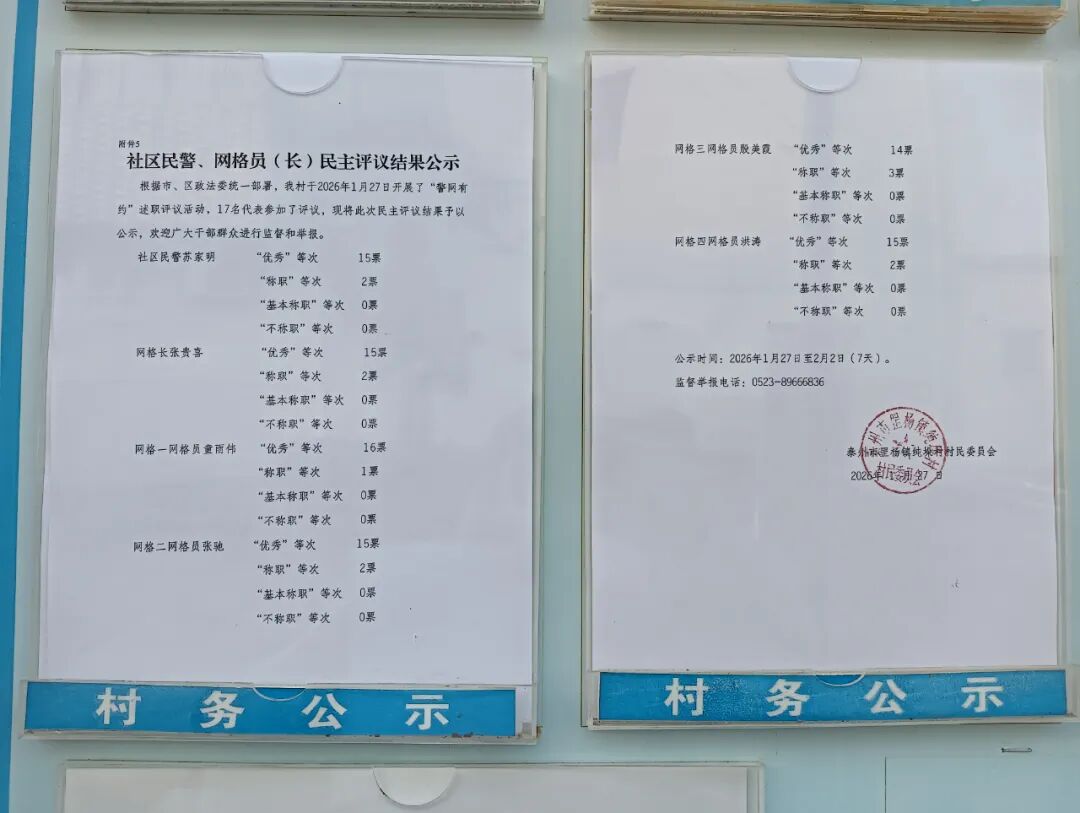 附件5
社区民警、网格员（长）民主评议结果公示
根据市、区政法委统一部署，我村于2026年1月27日开展了“警网有
约”述职评议活动，17名代表参加了评议，现将此次民主评议结果予以
公示，欢迎广大干部群众进行监督和举报。
社区民警苏家明 “优秀”等次 15票
“称职”等次 2票
“基本称职”等次 0票
“不称职”等次 0票
网格长张贵喜 “优秀”等次 15票
“称职”等次 2票
“基本称职”等次 0票
“不称职”等次 0票
网格一网格员童雨伟 “优秀”等次 16票
“称职”等次 1票
“基本称职”等次 0票
“不称职”等次 0票
网格二网格员张驰 “优秀”等次 15票
“称职”等次 2票
“基本称职”等次 0票
“不称职”等次 0票
村务公示
网格三网格员殷美霞 “优秀”等次 14票
“称职”等次 3票
“基本称职”等次 0票
“不称职”等次 0票
网格四网格员洪涛 “优秀”等次 15票
“称职”等次 2票
“基本称职”等次 0票
“不称职”等次 0票
公示时间：2026年1月27日至2月2日（7天）。
监督举报电话：0523-89666836
泰州市罡杨镇纯垛村村民委员会
2026年1月27日
村民委员会
村务公示